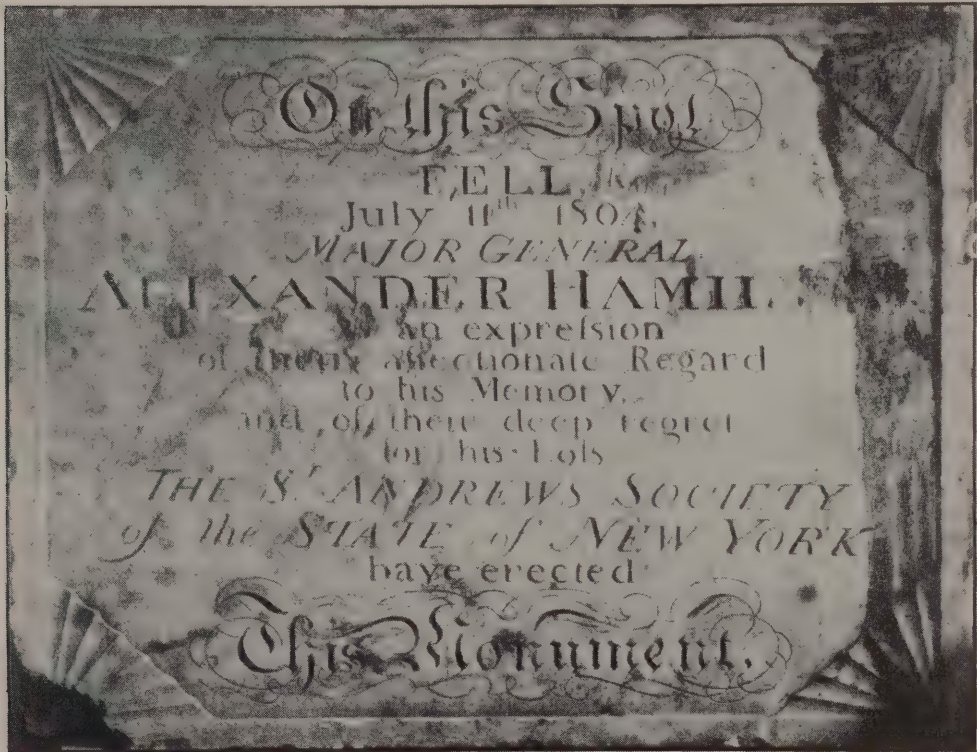 On this Spot
FELL,
July 11th 1804,
MAJOR GENERAL
ALEXANDER HAMIL
an expreſsion
of their affectionate Regard
to his Memory,
and of their deep regret
for his Loſs
THE St ANDREWS SOCIETY
of the STATE of NEW YORK
have erected
This Monument.